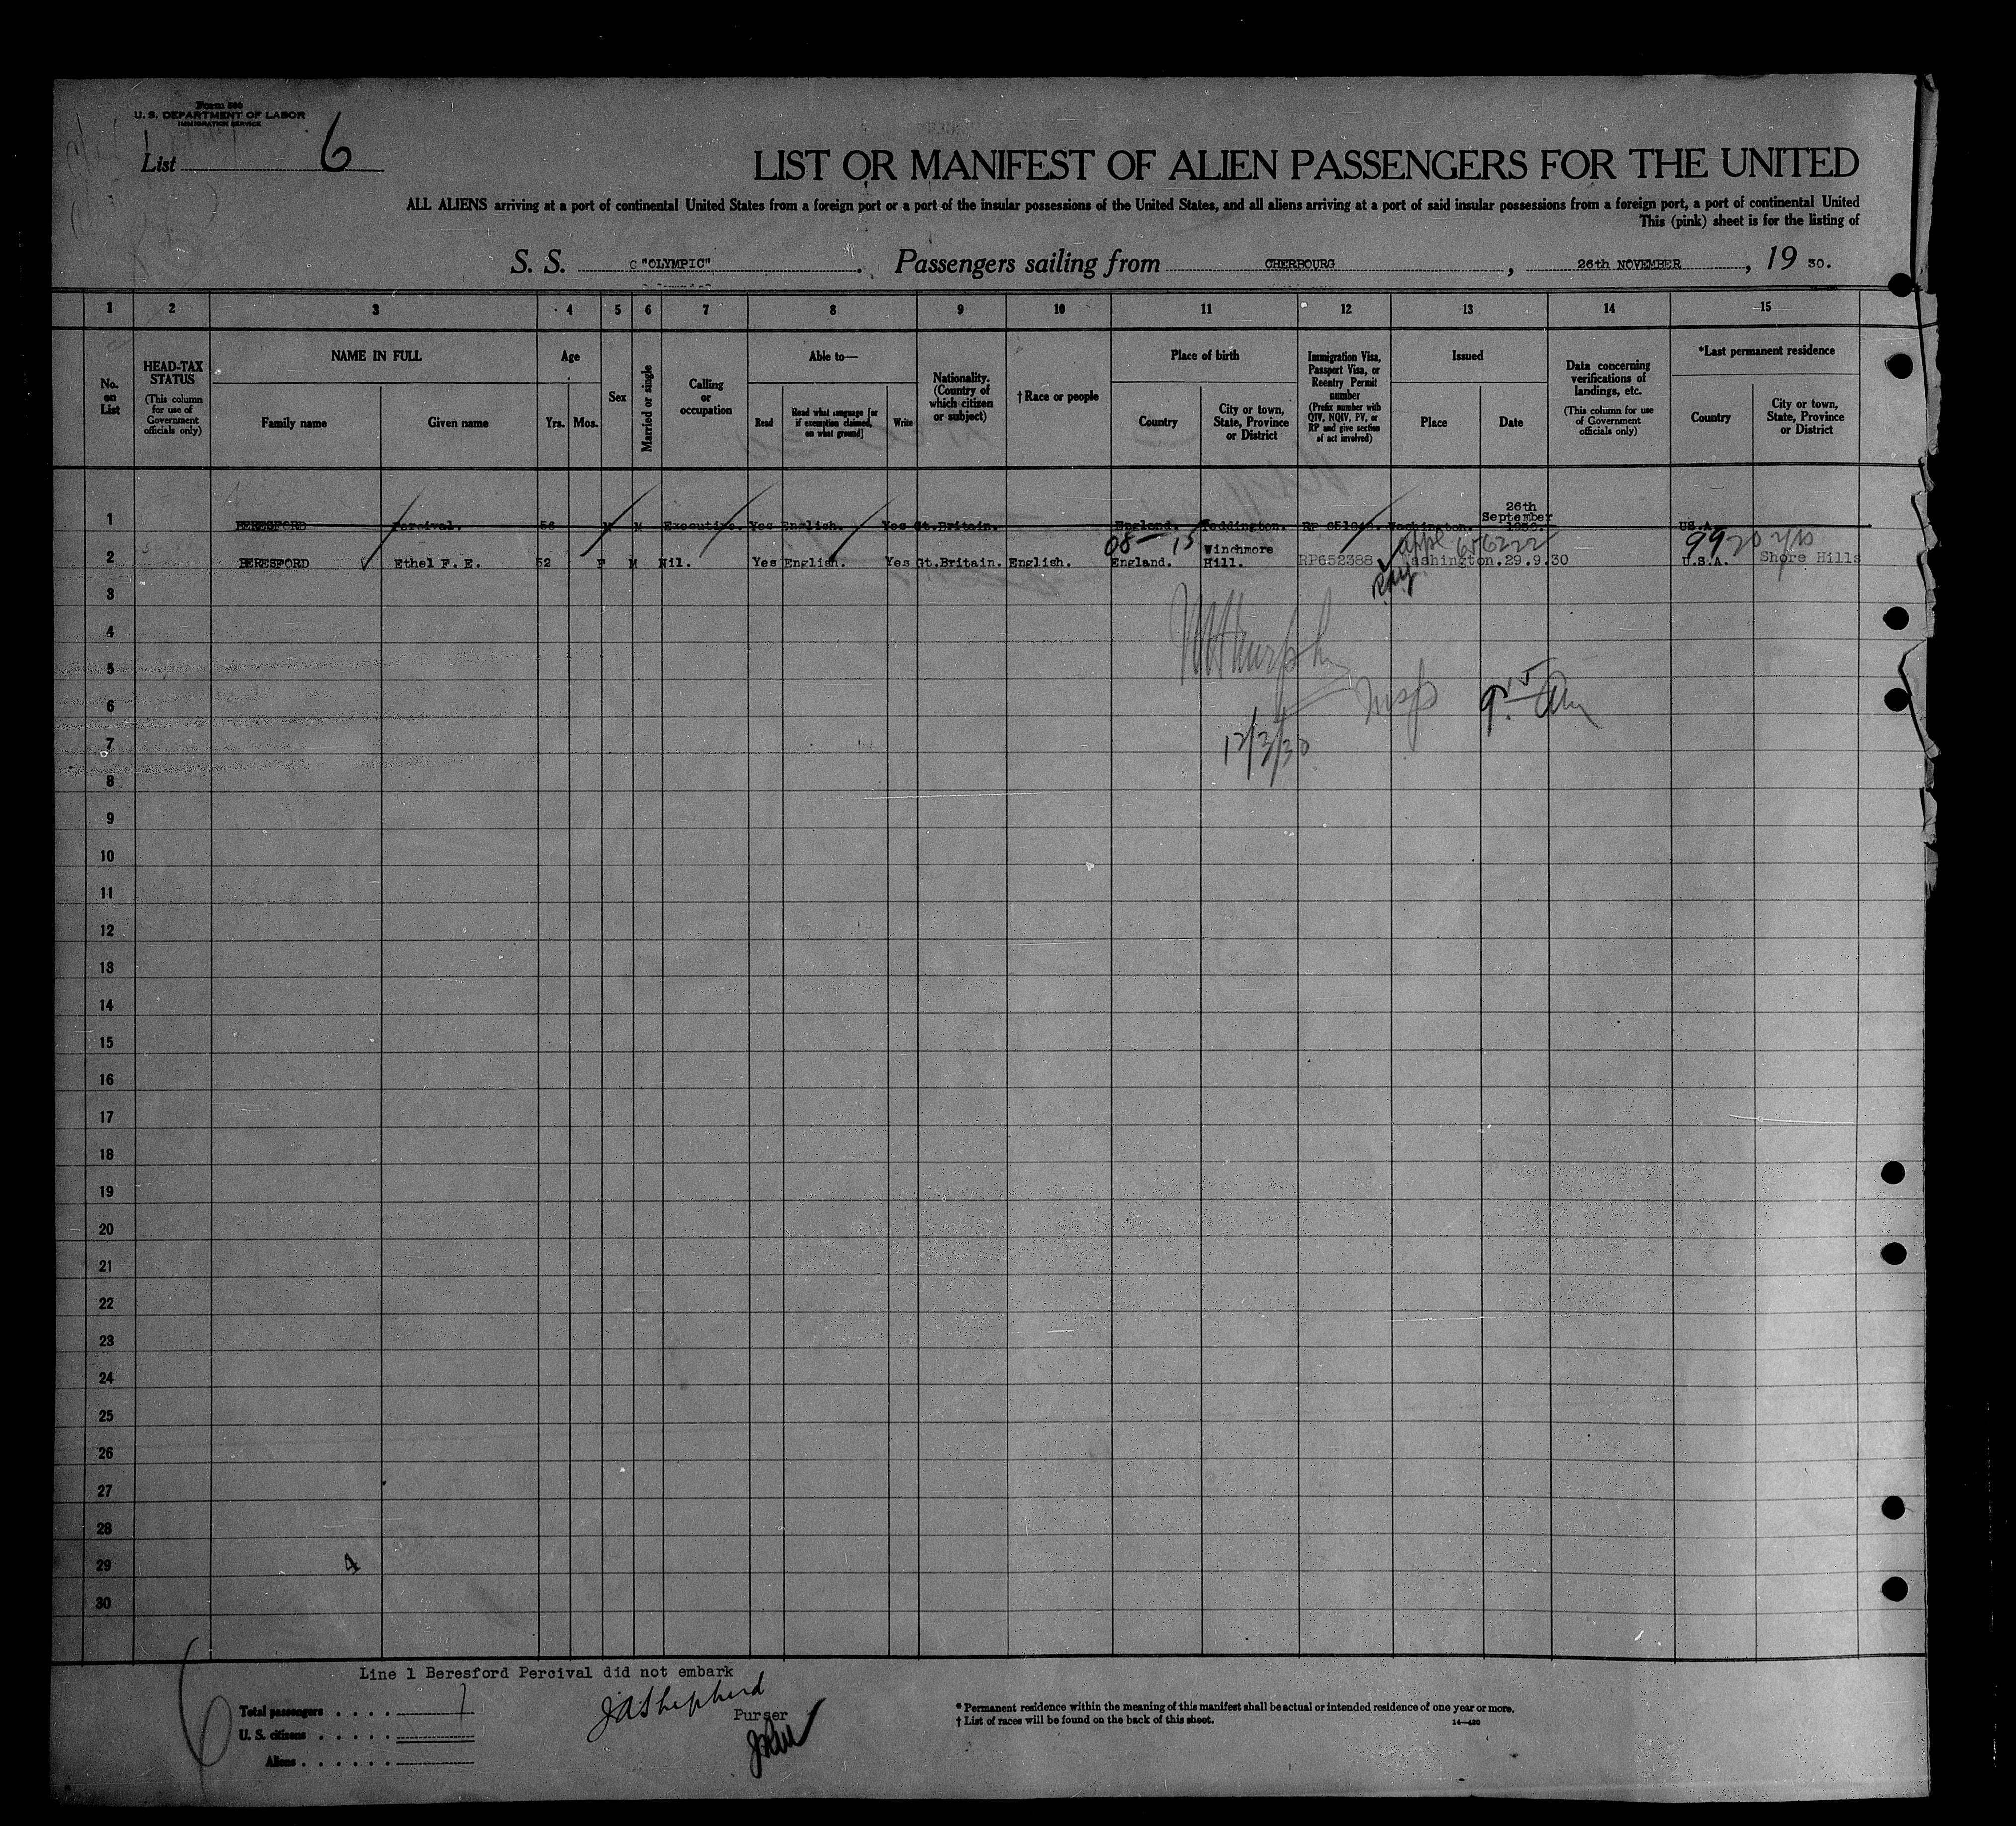 Form 500
U. S. DEPARTMENT OF LABOR
IMMIGRATION SERVICE
List 6
LIST OR MANIFEST OF ALIEN PASSENGERS FOR THE UNITED
ALL ALIENS arriving at a port of continental United States from a foreign port or a port of the insular possessions of the United States, and all aliens arriving at a port of said insular possessions from a foreign port, a port of continental United
This (pink) sheet is for the listing of
S. S. "OLYMPIC". Passengers sailing from CHERBOURG, 26th NOVEMBER, 19 30.
1 2 3 4 5 6 7 8 9 10 11 12 13 14 15
No. on List
HEAD-TAX STATUS
(This column for use of Government officials only)
NAME IN FULL
Family name
Given name
Age
Yrs.
Mos.
Sex
Married or single
Calling or occupation
Able to—
Read
Read what language [or if exemption claimed, on what ground]
Write
Nationality. (Country of which citizen or subject)
† Race or people
Place of birth
Country
City or town, State, Province or District
Immigration Visa, Passport Visa, or Reentry Permit number
(Prefix number with QIV, NQIV, PV, or RP and give section of act involved)
Issued
Place
Date
Data concerning verifications of landings, etc.
(This column for use of Government officials only)
*Last permanent residence
Country
City or town, State, Province or District
1 BERESFORD Percival. 56 M M Executive. Yes English. Yes Gt.Britain. England. Teddington. Washington. 26th September 1930. US.A.
08— 15 appl 656222 99 20 yrs
2 BERESFORD Ethel F. E. 52 F M Nil. Yes English. Yes Gt.Britain. English. England. Winchmore Hill. RP652388 Washington. 29.9.30 U.S.A. Shore Hills
3
4
5
6
9 15 Am
7
12/3/30
8
9
10
11
12
13
14
15
16
17
18
19
20
21
22
23
24
25
26
27
28
29 4
30
Line 1 Beresford Percival did not embark
Total passengers . . . . 1
J A Shepherd
Purser
U. S. citizens . . . . .
Aliens . . . . . .
* Permanent residence within the meaning of this manifest shall be actual or intended residence of one year or more.
† List of races will be found on the back of this sheet.
14—430